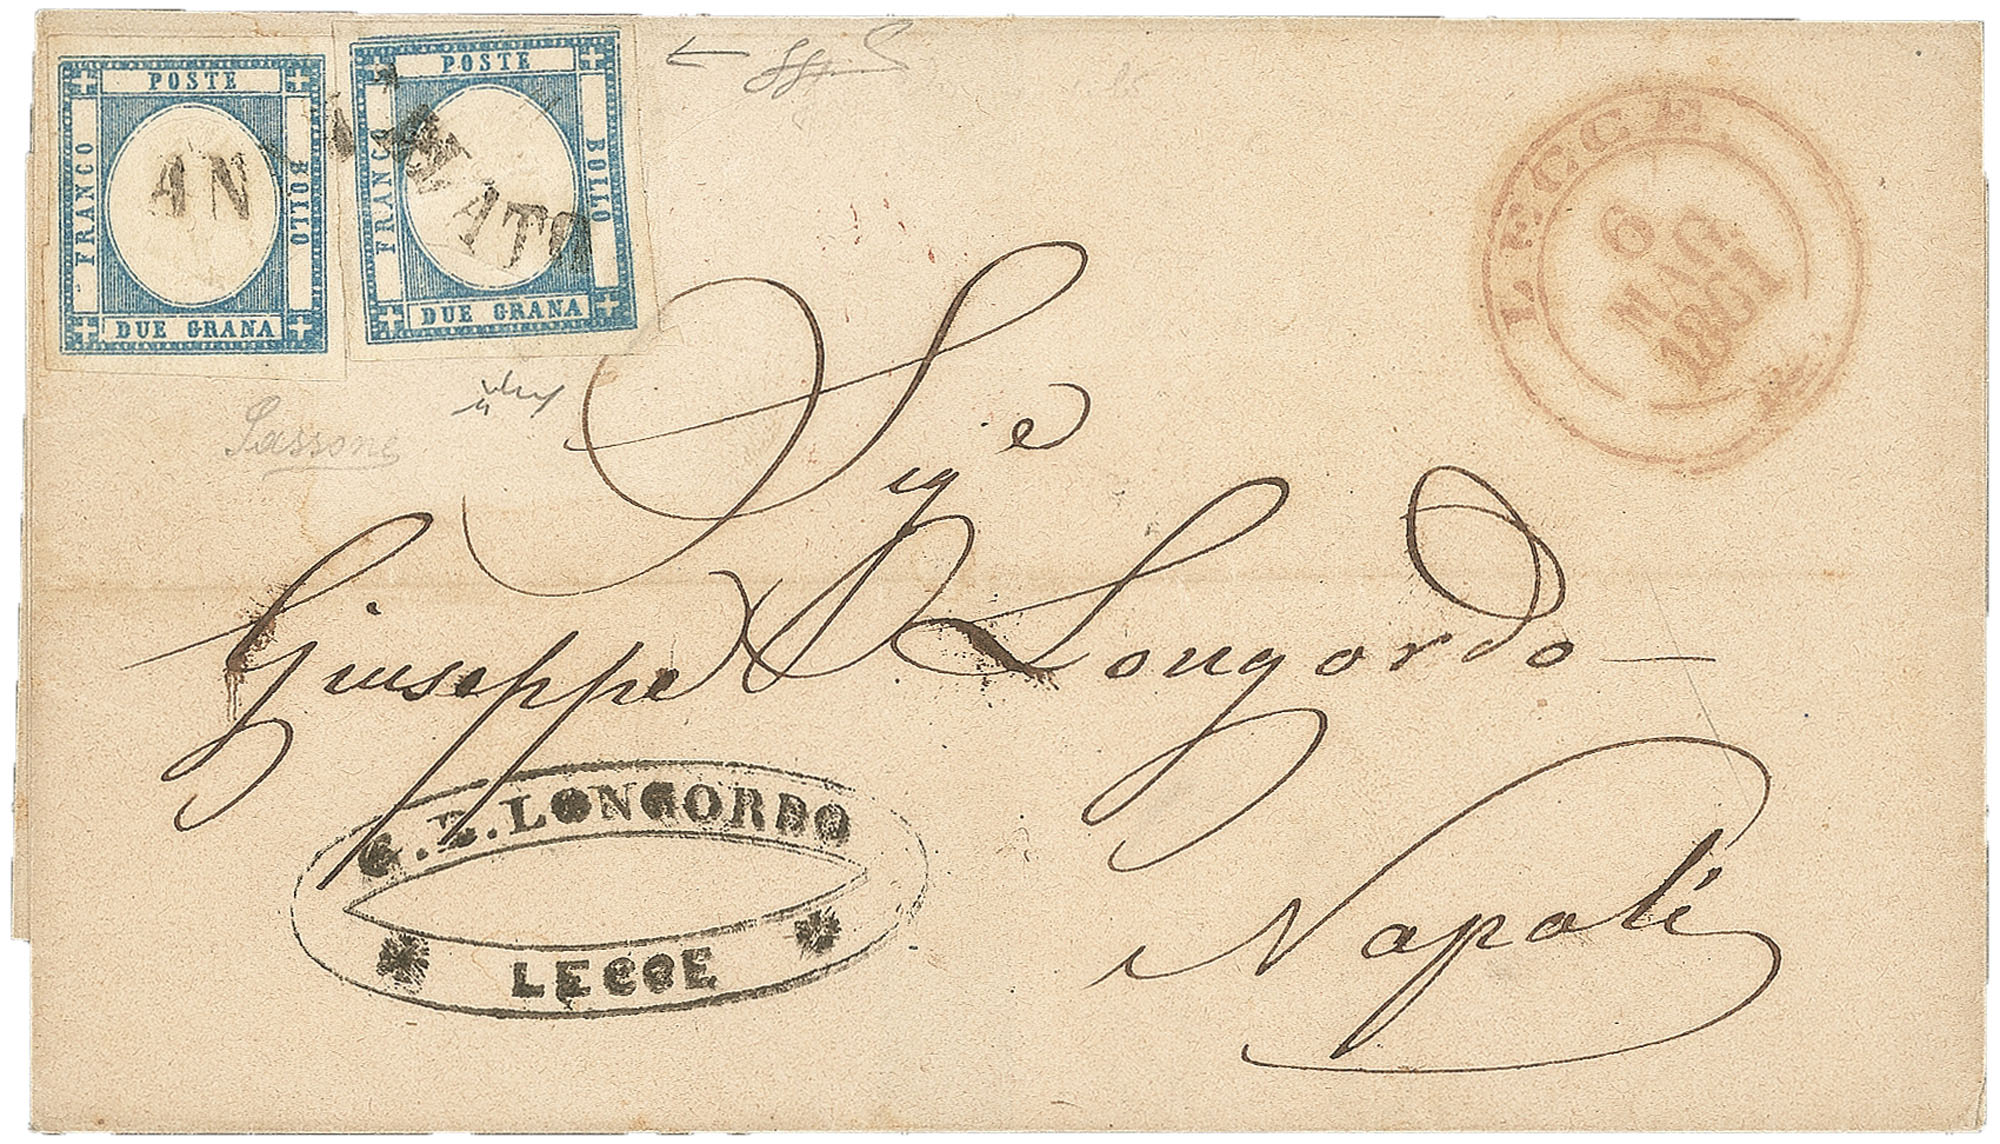 POSTE
FRANCO
BOLLO
DUE GRANA
POSTE
FRANCO
BOLLO
DUE GRANA
ANNULLATO
LECCE.
6
MAG
1861
Sassone
Sig.e
Giuseppe Longordo
Napoli
G. B. LONGORDO
LECCE